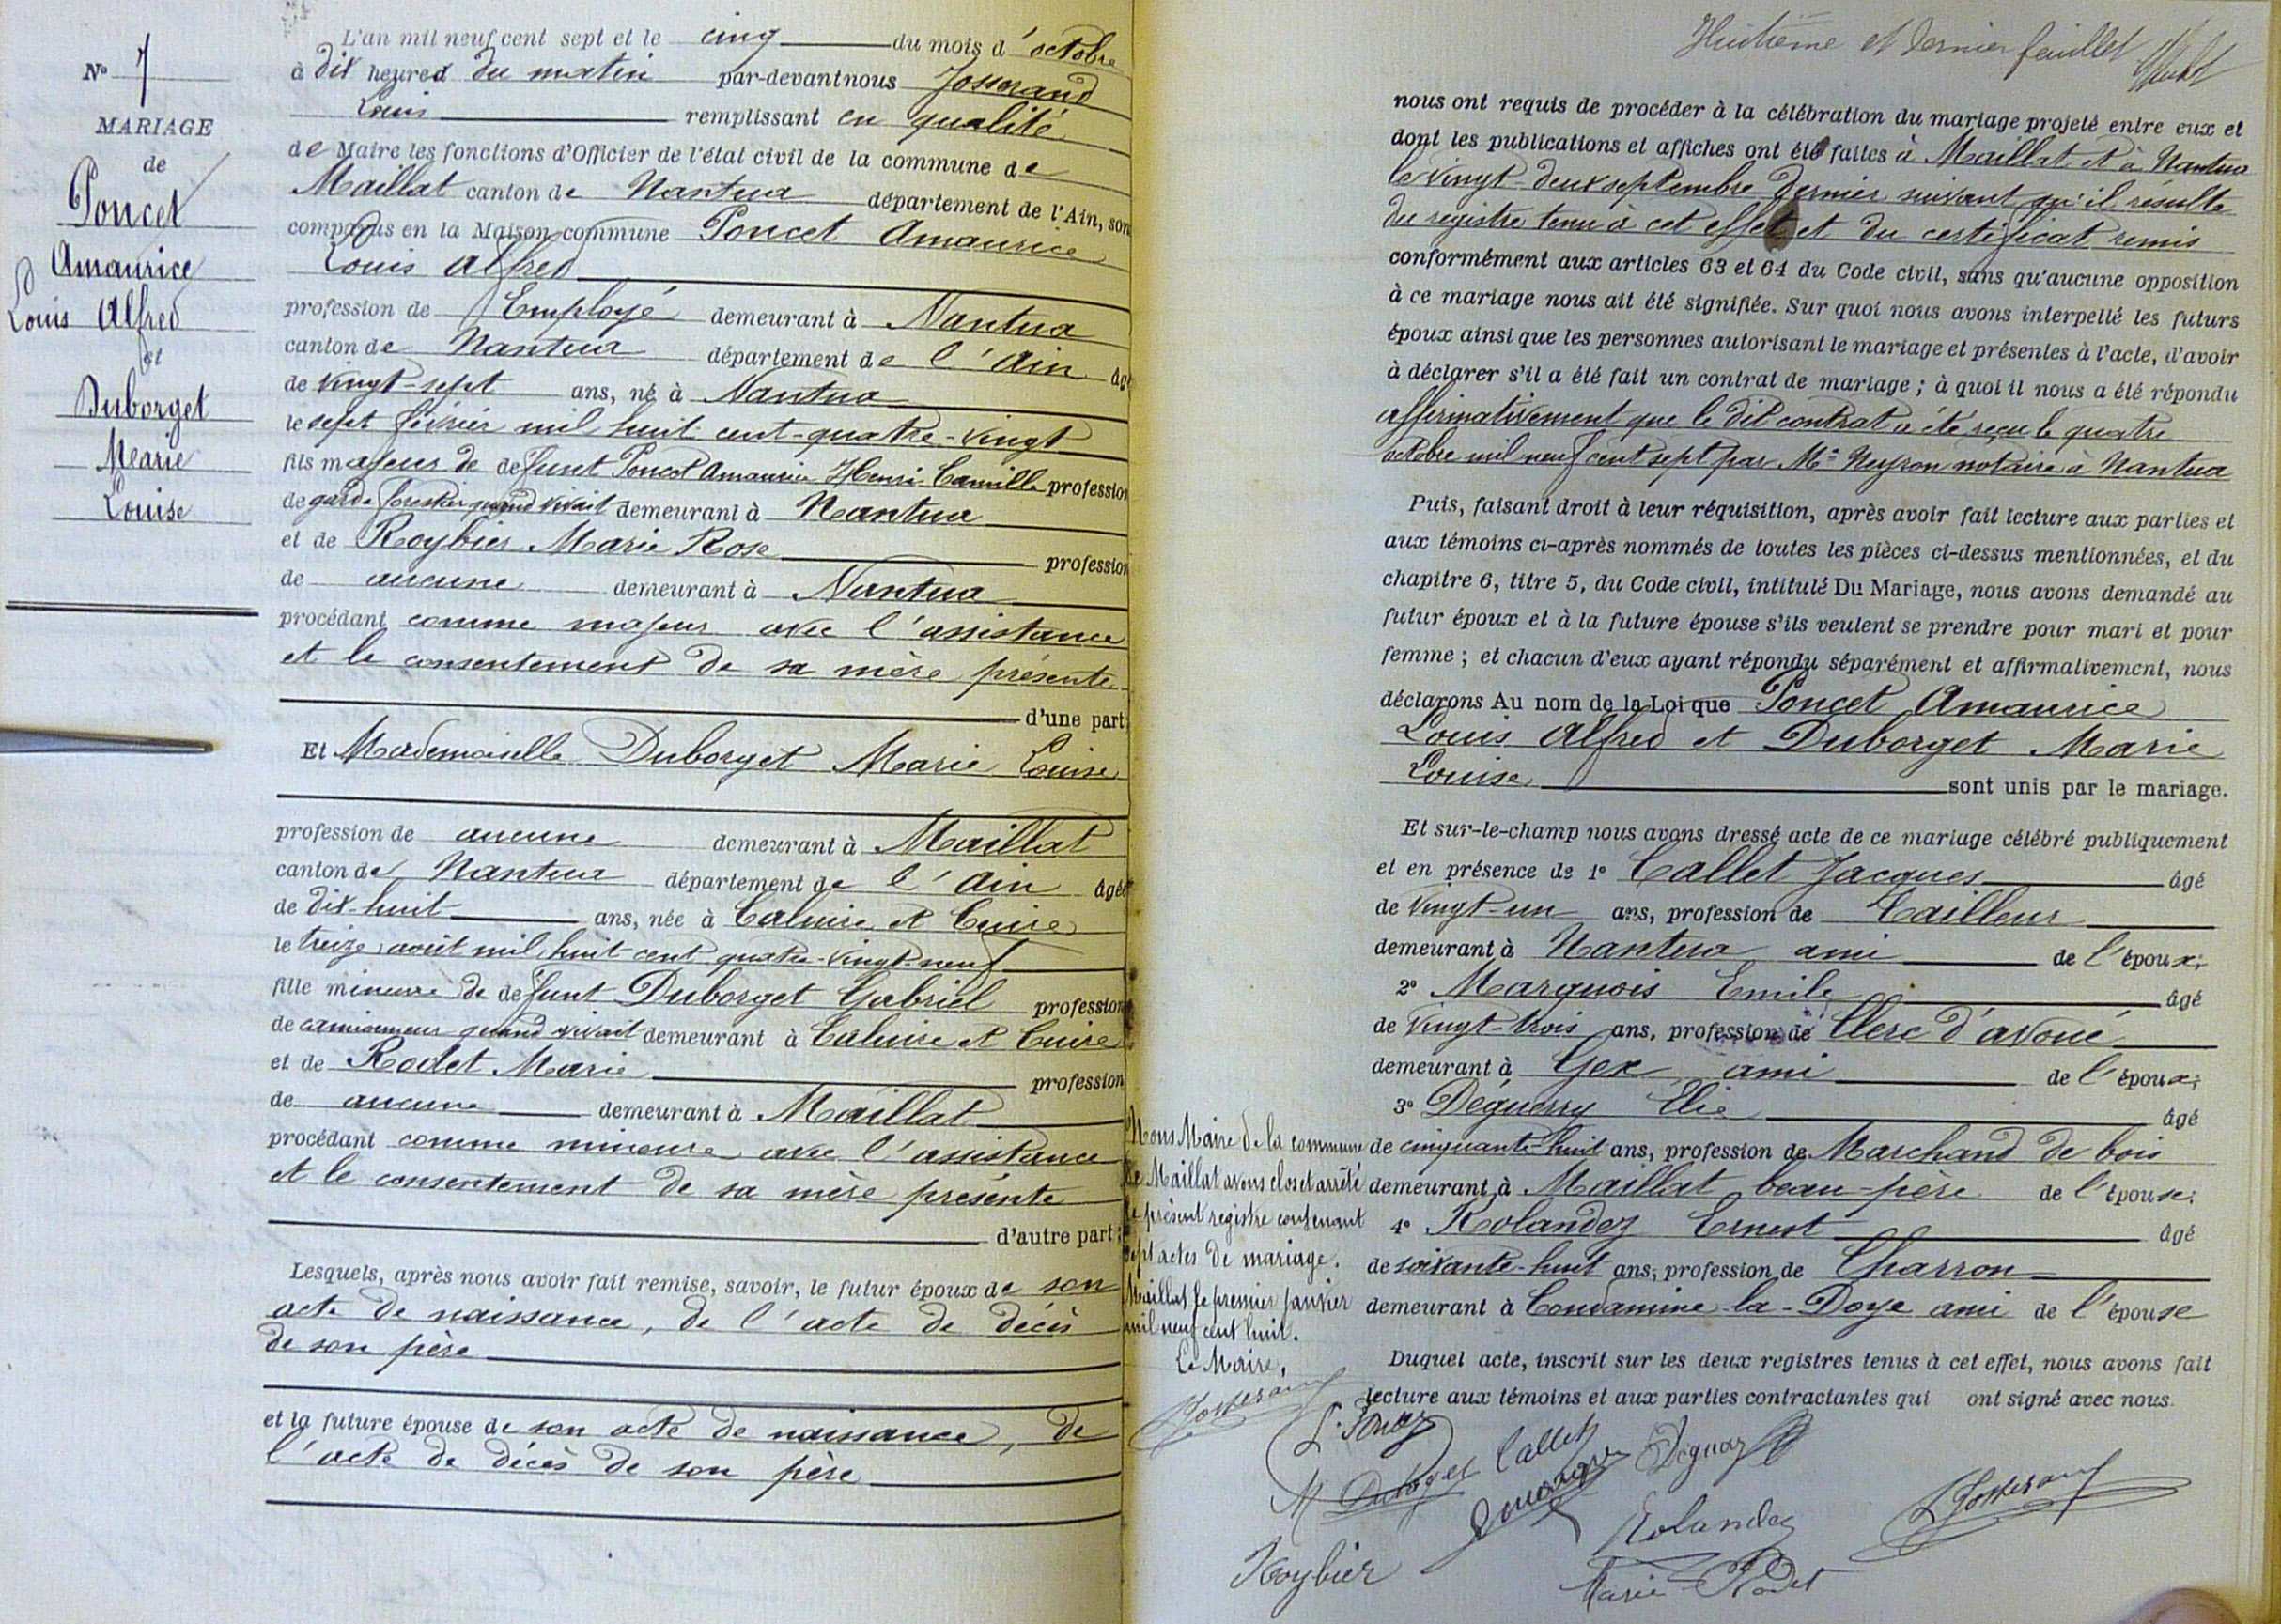 N° 7
MARIAGE
de
Poncet
Amaurice
Louis Alfred
et
Duborget
Marie
Louise
L'an mil neuf cent sept et le cinq du mois d'octobre
à dix heures du matin par-devant nous Josserand
Louis remplissant en qualité
de Maire les fonctions d'Officier de l'état civil de la commune de
Maillat canton de Nantua département de l'Ain, son
comparus en la Maison commune Poncet Amaurice
Louis Alfred
profession de Employé demeurant à Nantua
canton de Nantua département de l'Ain âgé
de vingt-sept ans, né à Nantua
le sept février mil huit cent-quatre-vingt
fils majeur de défunt Poncet Amaurice Henri Camille profession
de garde forestier quand vivait demeurant à Nantua
et de Roybier Marie Rose profession
de aucune demeurant à Nantua
procédant comme majeur avec l'assistance
et le consentement de sa mère présente
d'une part;
Et Mademoiselle Duborget Marie Louise
profession de aucune demeurant à Maillat
canton de Nantua département de l'Ain âgée
de dix-huit ans, née à Caluire et Cuire
le treize août mil huit cent quatre-vingt-neuf
fille mineure de défunt Duborget Gabriel profession
de camionneur quand vivait demeurant à Caluire et Cuire
et de Rodet Marie profession
de aucune demeurant à Maillat
procédant comme mineure avec l'assistance
et le consentement de sa mère présente
d'autre part;
Lesquels, après nous avoir fait remise, savoir, le futur époux de son
acte de naissance, de l'acte de décès
de son père
et la future épouse de son acte de naissance, de
l'acte de décès de son père
Huitième et dernier feuillet
nous ont requis de procéder à la célébration du mariage projeté entre eux et
dont les publications et affiches ont été faites à Maillat et à Nantua
le vingt-deux septembre dernier suivant qu'il résulte
du registre tenu à cet effet et du certificat remis
conformément aux articles 63 et 64 du Code civil, sans qu'aucune opposition
à ce mariage nous ait été signifiée. Sur quoi nous avons interpellé les futurs
époux ainsi que les personnes autorisant le mariage et présentes à l'acte, d'avoir
à déclarer s'il a été fait un contrat de mariage; à quoi il nous a été répondu
affirmativement que le dit contrat a été reçu le quatre
octobre mil neuf cent sept par Me Neyron notaire à Nantua
Puis, faisant droit à leur réquisition, après avoir fait lecture aux parties et
aux témoins ci-après nommés de toutes les pièces ci-dessus mentionnées, et du
chapitre 6, titre 5, du Code civil, intitulé Du Mariage, nous avons demandé au
futur époux et à la future épouse s'ils veulent se prendre pour mari et pour
femme; et chacun d'eux ayant répondu séparément et affirmativement, nous
déclarons Au nom de la Loi que Poncet Amaurice
Louis Alfred et Duborget Marie
Louise sont unis par le mariage.
Et sur-le-champ nous avons dressé acte de ce mariage célébré publiquement
et en présence de 1° Callet Jacques âgé
de vingt-un ans, profession de Tailleur
demeurant à Nantua ami de l'époux;
2° Marquois Emile âgé
de vingt-trois ans, profession de Clerc d'avoué
demeurant à Gex ami de l'époux;
3° Déguerry Elie âgé
de cinquante-huit ans, profession de Marchand de bois
demeurant à Maillat beau-père de l'épouse;
4° Rolandez Ernest âgé
de soixante-huit ans, profession de Charron
demeurant à Condamine-la-Doye ami de l'épouse
Duquel acte, inscrit sur les deux registres tenus à cet effet, nous avons fait
lecture aux témoins et aux parties contractantes qui ont signé avec nous.
Nous Maire de la commune
de Maillat avons clos et arrêté
le présent registre contenant
sept actes de mariage.
Maillat le premier janvier
mil neuf cent huit.
Le Maire,
Josserand
M Duborget Callet
Rolandez
Josserand
Roybier
Marie Rodet